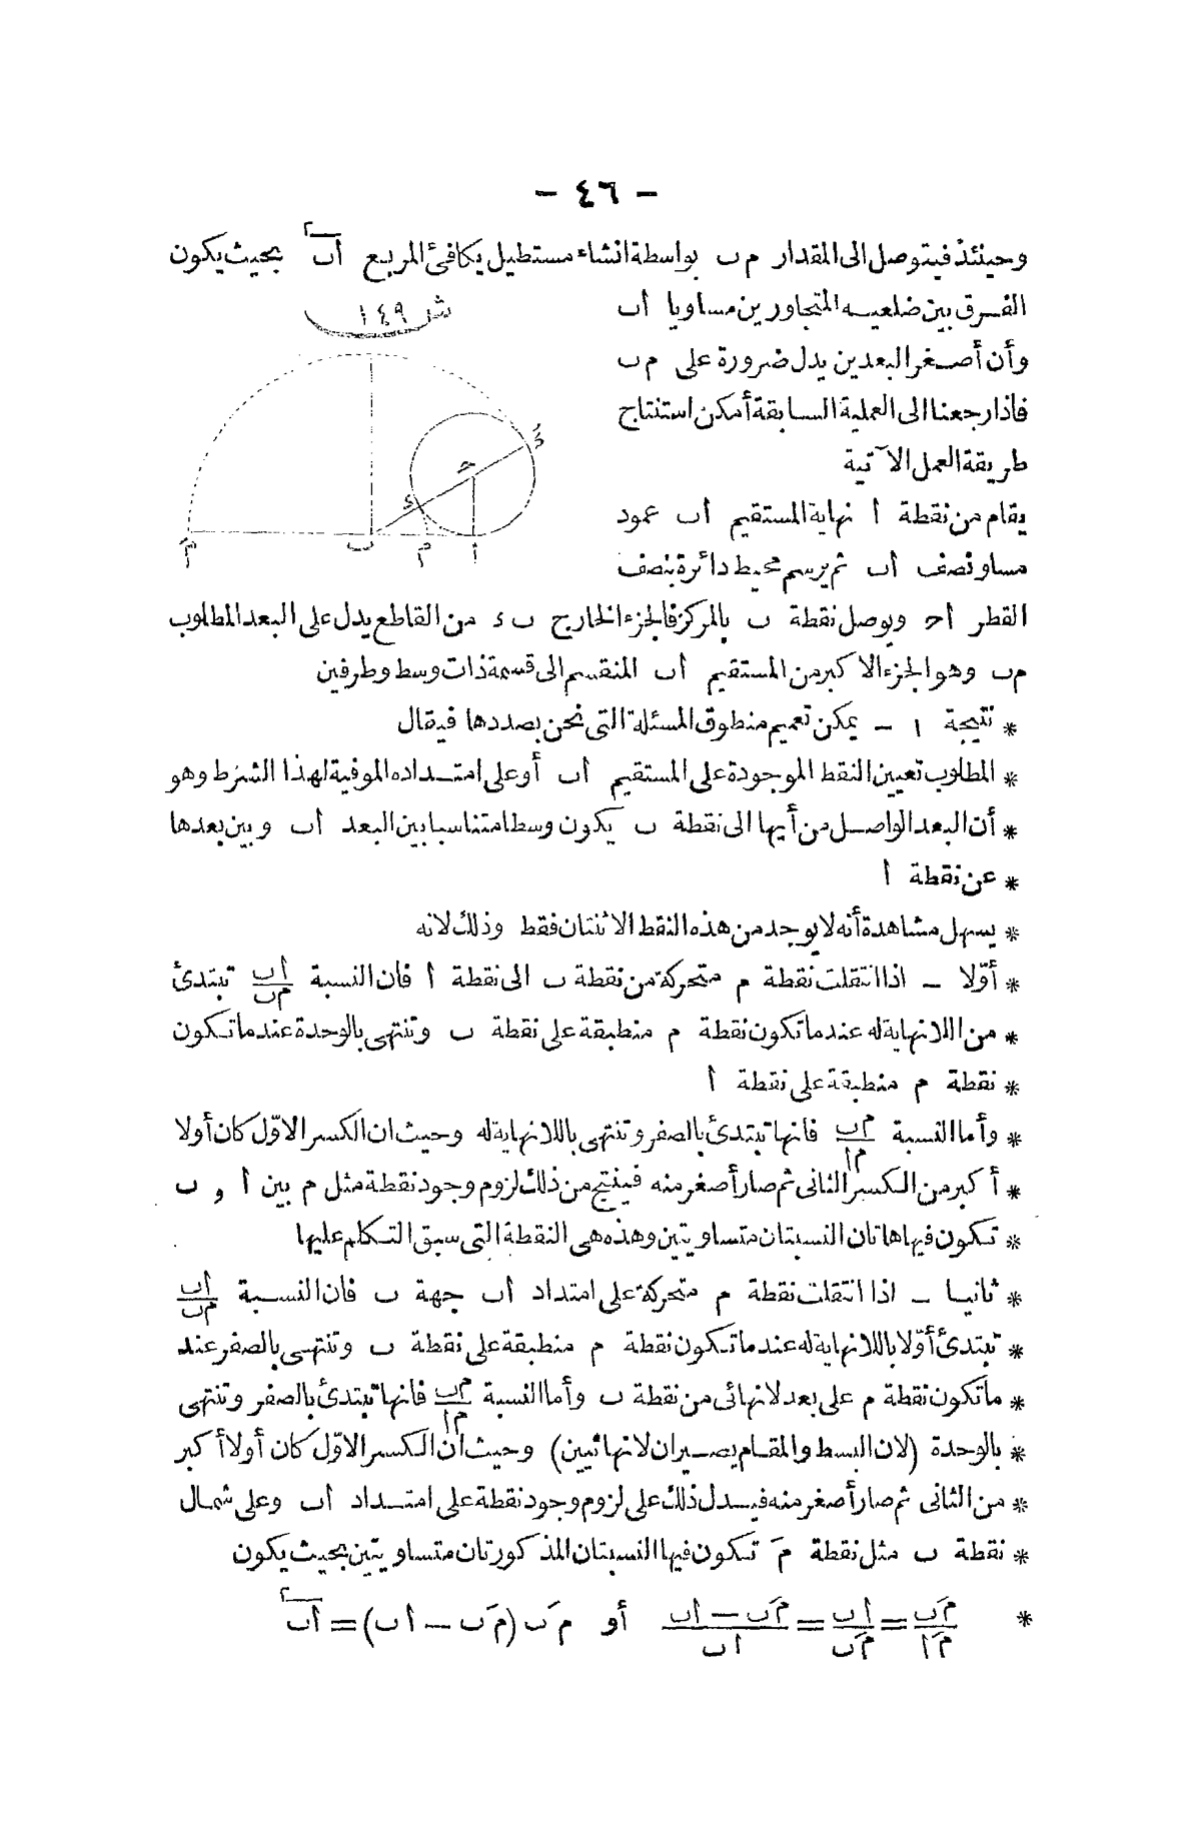 — ٤٦ —
وحينئذ فيتوصل الى المقدار م ب بواسطة انشاء مستطيل يكافئ المربع أب٢ بحيث يكون
الفرق بين ضلعيه المتجاورين مساويا أب
وأن أصغر البعدين يدل ضرورة على م ب
فاذا رجعنا الى العملية السابقة أمكن استنتاج
طريقة العمل الآتية
يقام من نقطة أ نهاية المستقيم أب عمود
مساو نصف أب ثم يرسم محيط دائرة بنصف
ش ١٤٩
ءَ
ح
ء
مَ
ب
م
أ
القطر أح ويوصل نقطة ب بالمركز فالجزء الخارج ب ء من القاطع يدل على البعد المطلوب
م ب وهو الجزء الاكبر من المستقيم أب المنقسم الى قسمة ذات وسط وطرفين
* نتيجة ١ — يمكن تعميم منطوق المسئلة التى نحن بصددها فيقال
* المطلوب تعيين النقط الموجودة على المستقيم أب أو على امتداده الموفية لهذا الشرط وهو
* أن البعد الواصل من أيها الى نقطة ب يكون وسطا متناسبا بين البعد أب وبين بعدها
* عن نقطة أ
* يسهل مشاهدة أنه لا يوجد من هذه النقط الا ثنتان فقط وذلك لانه
* أوّلا — اذا انتقلت نقطة م متحركة من نقطة ب الى نقطة أ فان النسبة أب/م ب تبتدئ
* من اللانهاية له عند ما تكون نقطة م منطبقة على نقطة ب وتنتهى بالوحدة عند ما تكون
* نقطة م منطبقة على نقطة أ
* وأما النسبة م ب/م أ فانها تبتدئ بالصفر وتنتهى باللانهاية له وحيث ان الكسر الاوّل كان أولا
* أكبر من الكسر الثانى ثم صار أصغر منه فينتج من ذلك لزوم وجود نقطة مثل م بين أ و ب
* تكون فيها هاتان النسبتان متساويتين وهذه هى النقطة التى سبق التكلم عليها
* ثانيا — اذا انتقلت نقطة م متحركة على امتداد أب جهة ب فان النسبة أب/م ب
* تبتدئ أوّلا باللانهاية له عند ما تكون نقطة م منطبقة على نقطة ب وتنتهى بالصفر عند
* ما تكون نقطة م على بعد لانهائى من نقطة ب وأما النسبة م ب/م أ فانها تبتدئ بالصفر وتنتهى
* بالوحدة (لان البسط والمقام يصيران لانهائيين) وحيث ان الكسر الاوّل كان أولا أكبر
* من الثانى ثم صار أصغر منه فيدل ذلك على لزوم وجود نقطة على امتداد أب وعلى شمال
* نقطة ب مثل نقطة مَ تكون فيها النسبتان المذكورتان متساويتين بحيث يكون
* مَ ب/مَ أ = أب/مَ ب = (مَ ب — أب)/أب أو مَ ب (مَ ب — أب) = أب٢